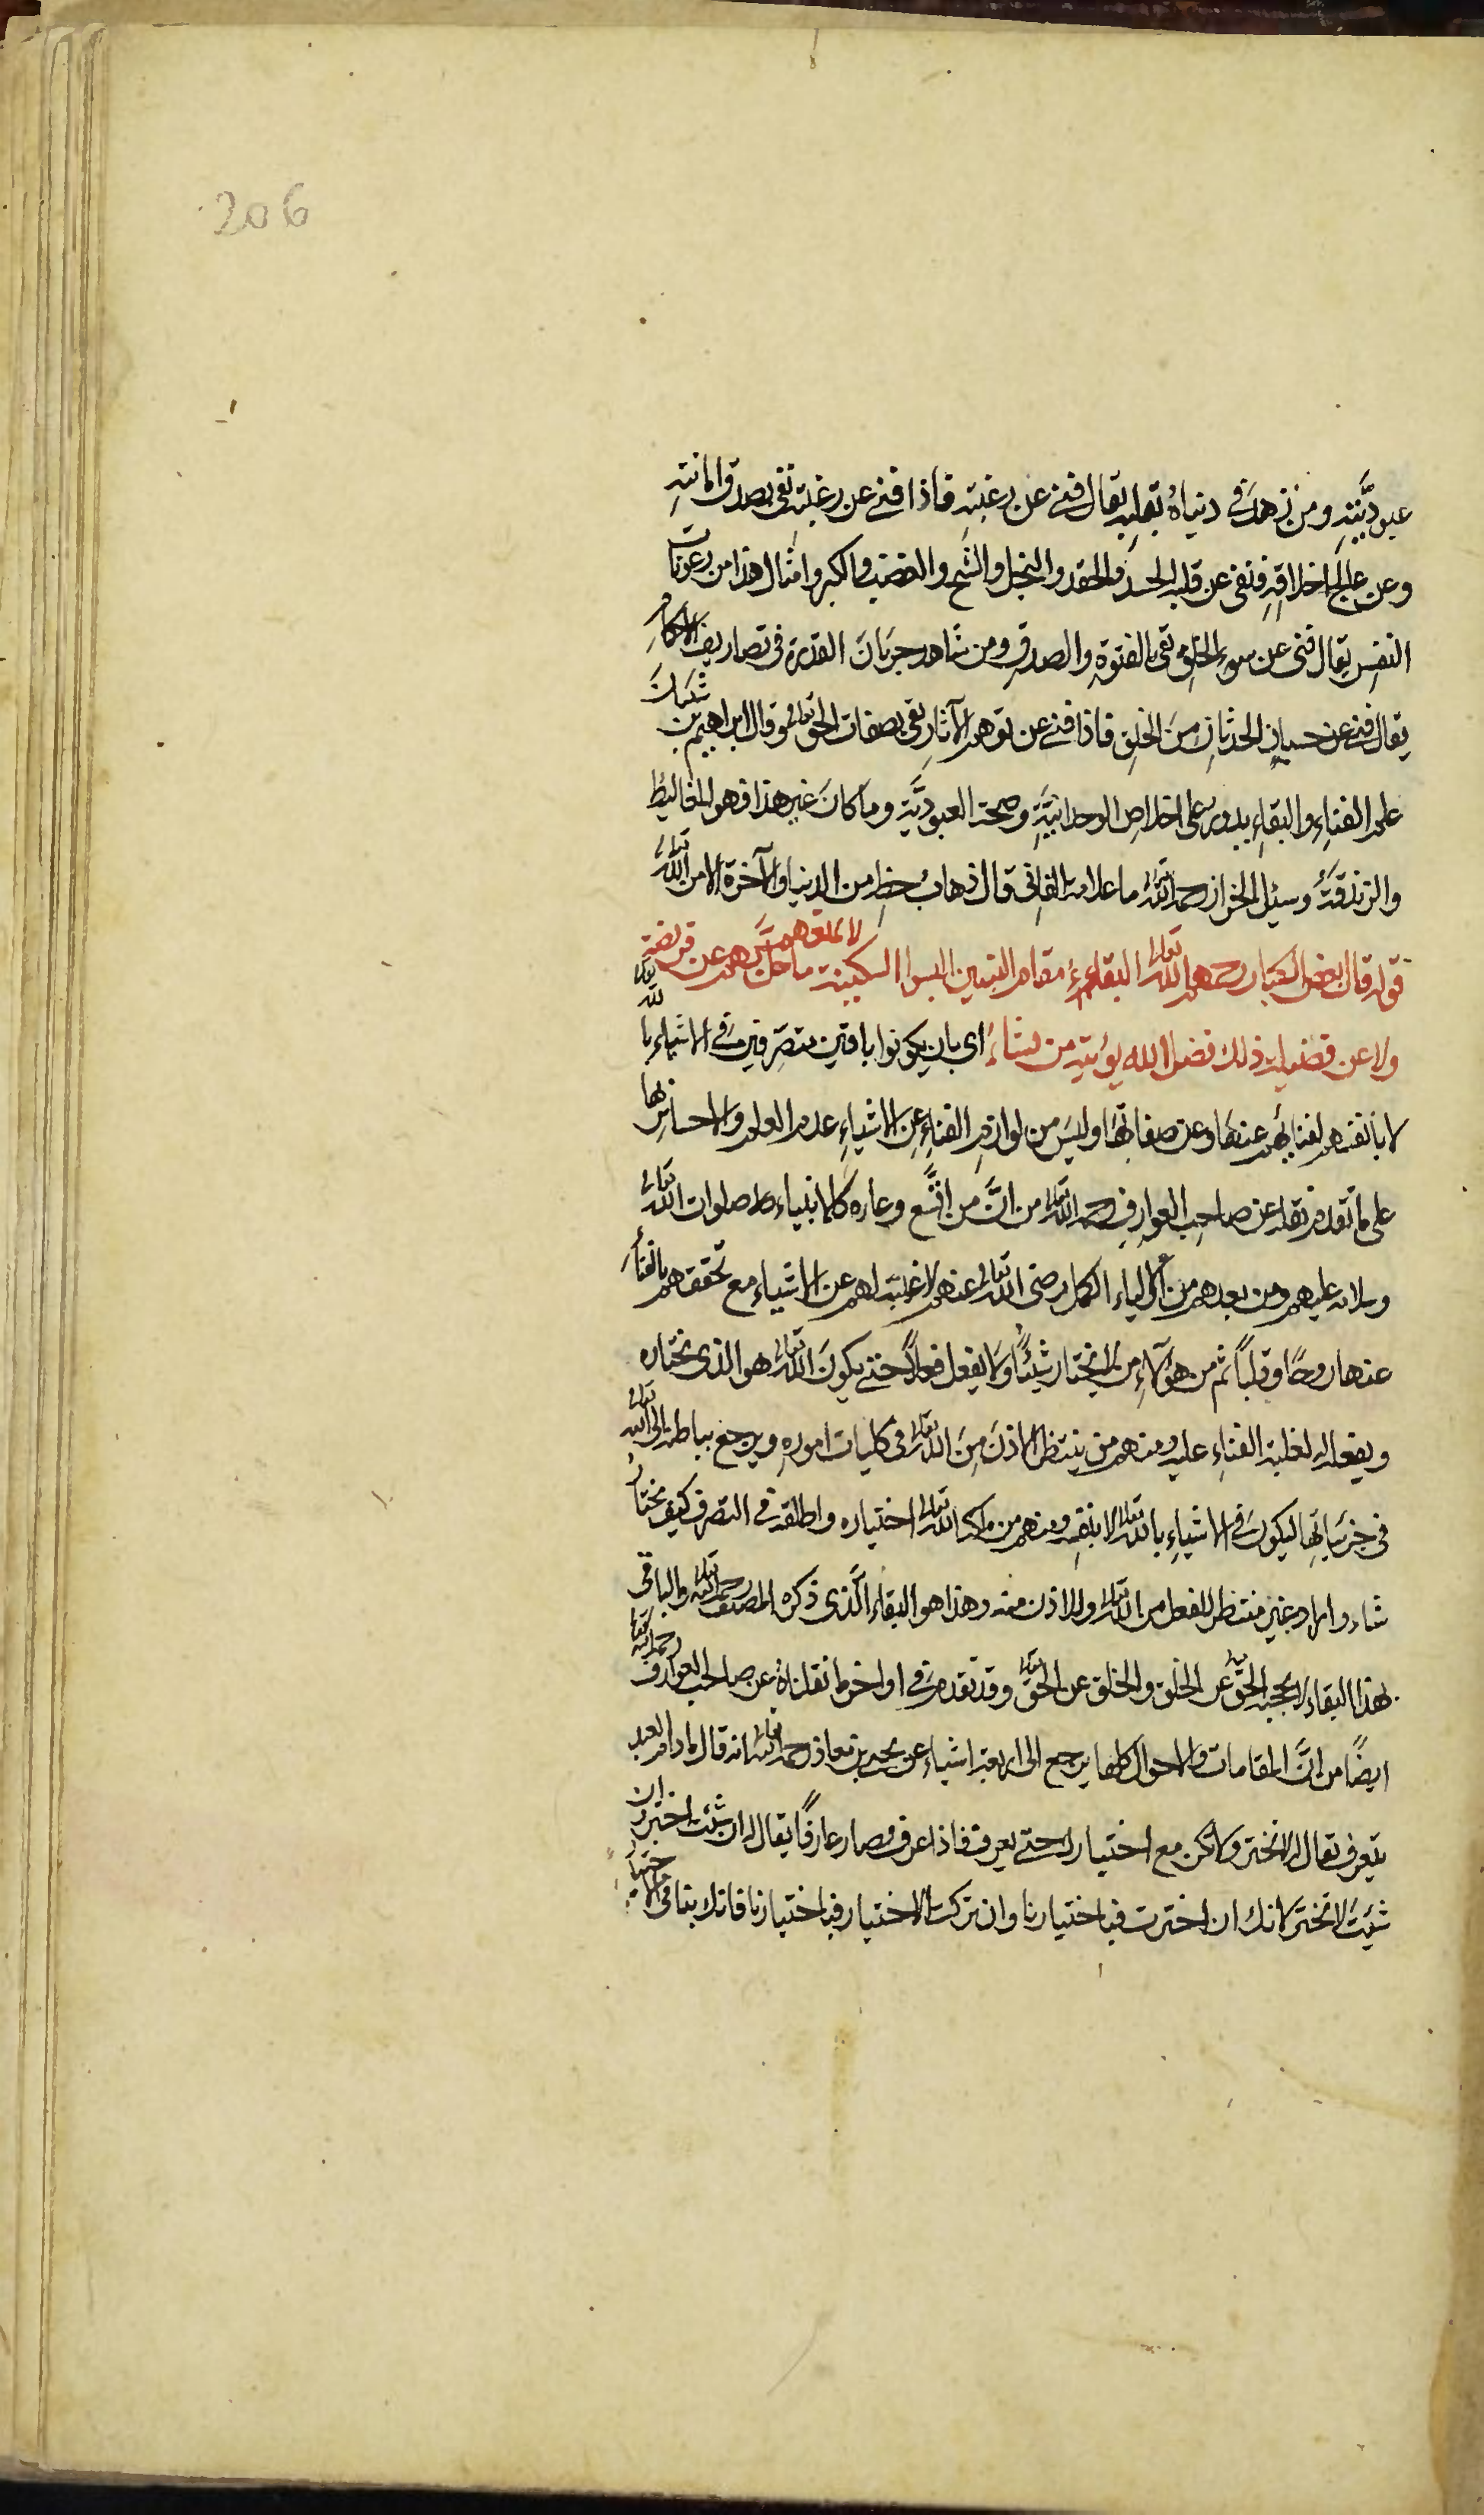 206
عبوديّتِه ومن زهدَ في دنياهُ بقلبِه يقال فني عن رغبتِه فاذا فني عن رغبته بقي بصدق انابتِهِ
وعن عالج اخلاقِهِ فنفى عن قلبه الحسدَ والحقد والبخل والشح والغضب والكبر وامثال هذا من رعونات
النفسِ يقال فنى عن سوء الخلق بقي بالفتوةِ والصدقِ ومن شاهد جريَانَ القدرة في تصاريف الاحكامِ
يقال فني عن حسبانِ الحدثانِ منَ الخلقِ فاذا فني عن توهم الآثارِ بقي بصفات الحق تعالى وقال ابراهيم بن شيبانَ
علم الفناءِ والبقاءِ يدور على اخلاصِ الوحدانيَّةِ وصحة العبوديَّة وما كانَ غير هذا فهو المغاليطُ
والزندقةُ وسئل الخراز رحمه الله تعالى ما علامة الفانى قال ذهابُ حظهِ من الدنيا والآخرة الا من الله تعالى
قوله قال بعض الكبار رحمهم الله تعالى البقاءُ مقام النبيين البسوا السكينة لا يمنعهم ما حلَّ بهم عن فريضة لله تعالى
ولا عن فضيلة ذلك فضل الله يؤتيه من يشاءُ اى بان يكونوا باقين متصرفين في الاشياء بالله تعالى
لا بانفسهم لفنائهم عنها وعن صفاتها وليسَ من لوازم الفناءِ عن الاشياءِ عدم العلم والاحساس بها
على ما تقدم نقله عن صاحب العوارفِ رحمه الله تعالى من انَّ من اتَّسع وعاءه كالانبياء صلوات الله تعالى
وسلامه عليهم ومن بعدهم من الاولياء الكمل رضى الله تعالى عنهم لا غيبة لهم عن الاشياء مع تحققهم بالفناءِ
عنها روحًا وقلباً ثم من هؤلاءِ من لا يختار شيئًا ولا يفعل فعلاً حتى يكونَ الله تعالى هو الذي يختاره
ويفعله لغلبة الفناءِ عليه ومنهم من ينتظر الاذنَ مِنَ الله تعالى في كليات امورِهِ ويرجع بباطنه الى الله تعالى
في جزئياتِها ليكونَ في الاشياءِ بالله تعالى لا بنفسِه ومنهم من ملّكه الله تعالى اختياره واطلقه في التصرف كيف يختارُ
شاء واراد غير منتظر للفعل من الله تعالى ولا للاذن منه وهذا هو البقاء الَّذى ذكره المصنف رحمه الله تعالى والباقى
بهذا البقاء لا يحجبه الحقُّ عن الخلق والخلق عن الحقِّ تعالى وقد تقدم في اواخر ما نقلناهُ عن صاحب العوارف رحمه الله تعالى
ايضًا من انَّ المقامات والاحوال كلها يرجع الى اربعة اشياء عن يحيى بن معاذ رحمه الله تعالى انه قال ما دام العبد
يتعرف يقال له لا تختر ولا تكن مع اختيارك حتى تعرف فاذا عرف وصار عارفًا يقال له ان شئت اختر وان
شئتَ لا تختر لانك ان اخترت فباختيارنا وان تركت الاختيار فباختيارنا فانك بنا في الاختيار